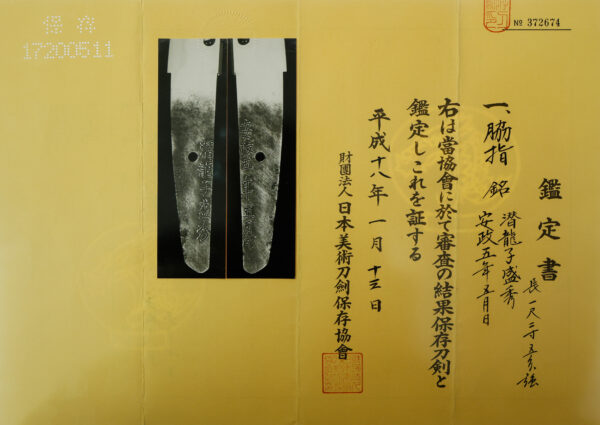 保存
17200511
№ 372674
鑑定書
一、脇指 銘 潜龍子盛秀
安政五年五月日
長一尺二寸五分強
右は當協會に於て審査の結果保存刀剣と
鑑定しこれを証する
平成十八年一月十三日
財團法人 日本美術刀劍保存協會